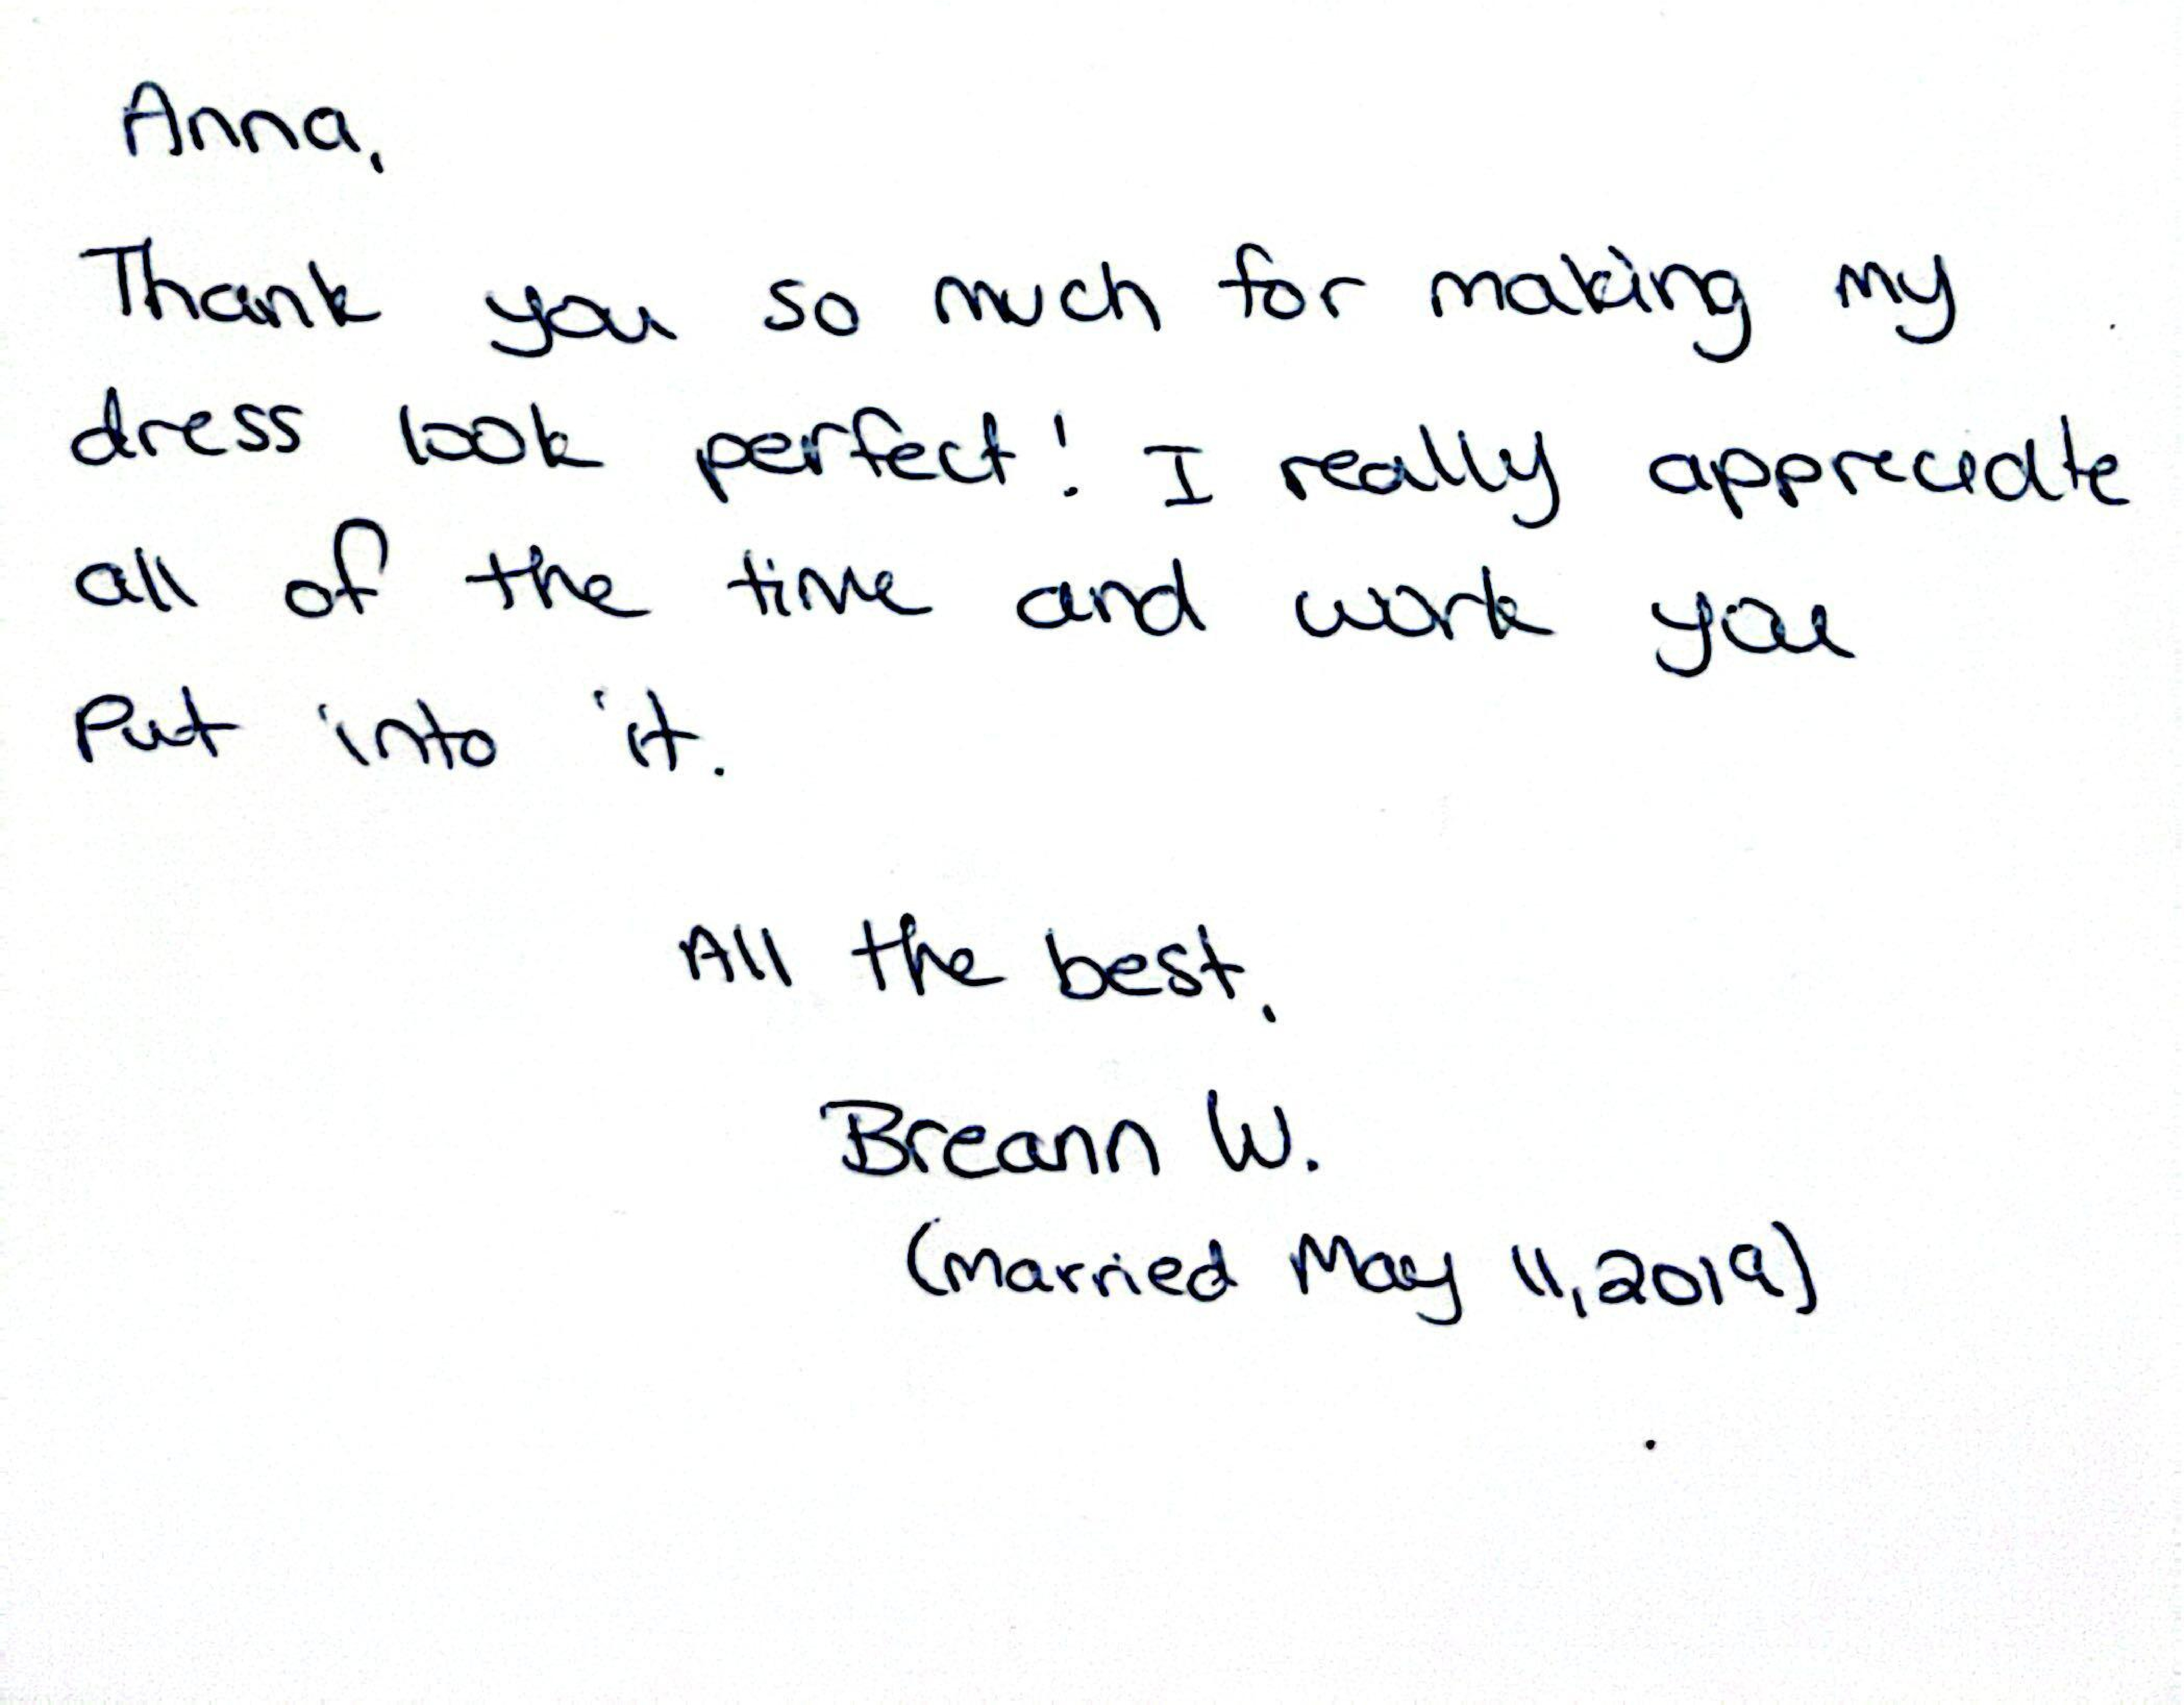 Anna,
Thank you so much for making my
dress look perfect! I really appreciate
all of the time and work you
Put into it.
All the best,
Breann W.
(Married May 11, 2019)